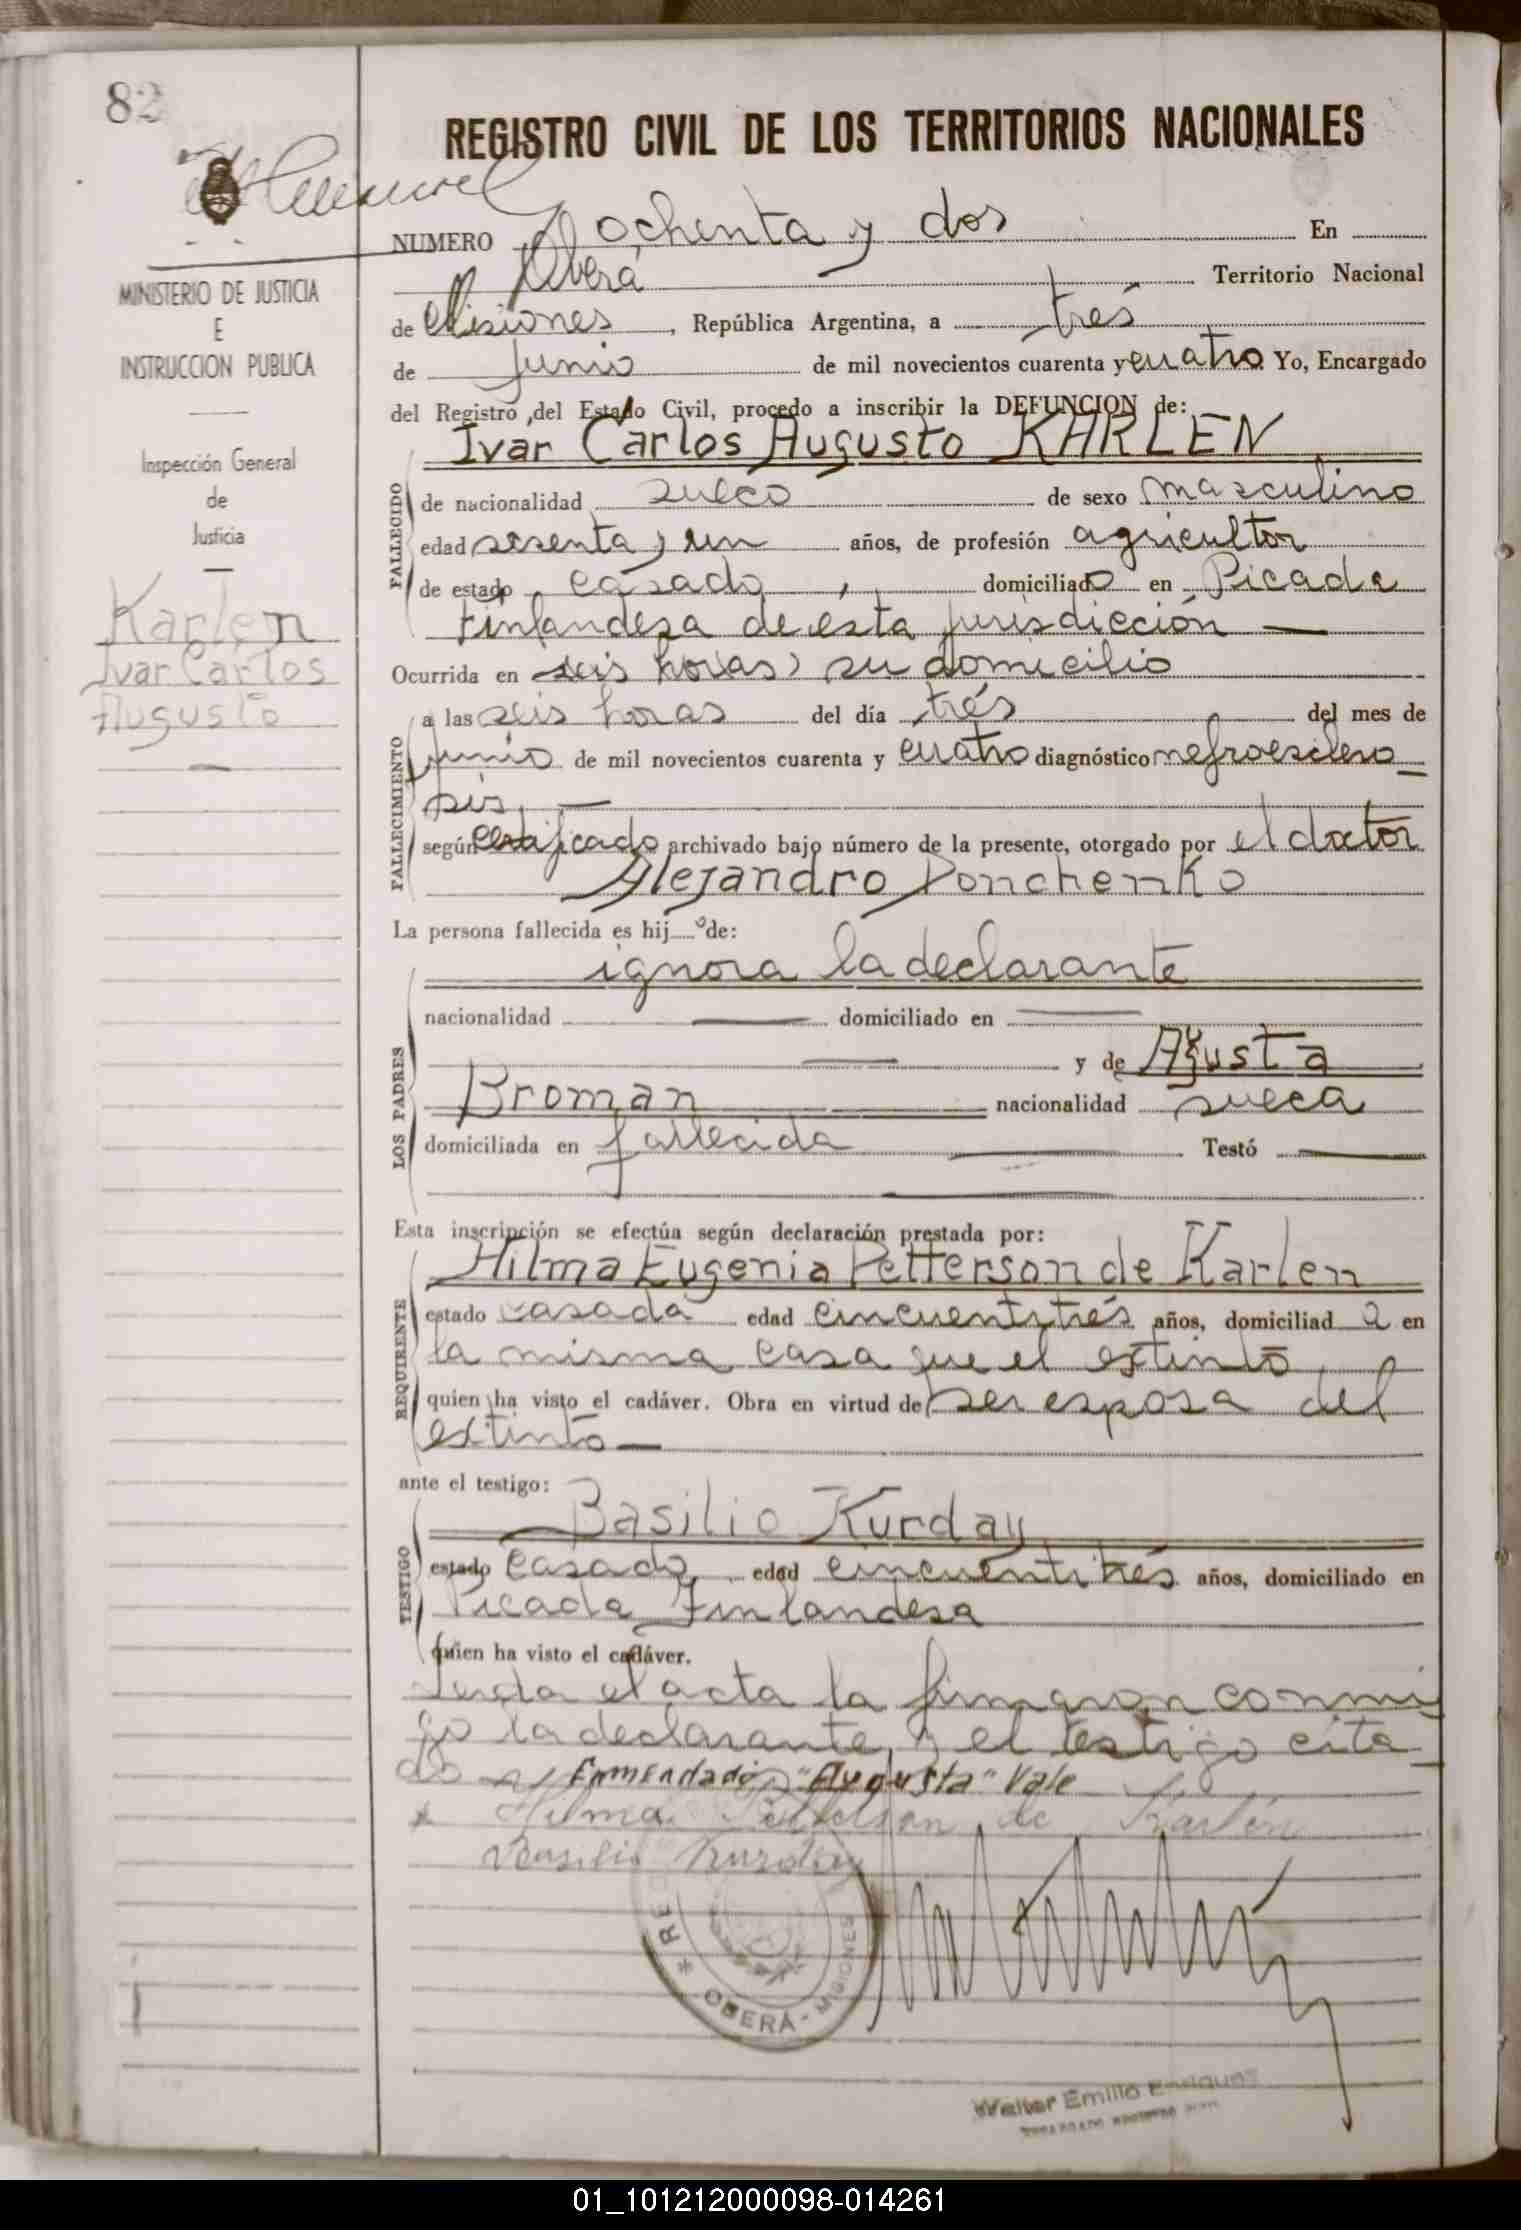 82
REGISTRO CIVIL DE LOS TERRITORIOS NACIONALES
MINISTERIO DE JUSTICIA
E
INSTRUCCION PUBLICA
Inspección General
de
Justicia
Karlen
Ivar Carlos
Augusto
NUMERO ochenta y dos En
Oberá Territorio Nacional
de Misiones, República Argentina, a trés
de junio de mil novecientos cuarenta y cuatro Yo, Encargado
del Registro del Estado Civil, procedo a inscribir la DEFUNCION de:
Ivar Carlos Augusto KARLEN
FALLECIDO
de nacionalidad sueco de sexo masculino
edad sesenta y un años, de profesión agricultor
de estado casado, domiciliado en Picada
Finlandesa de esta jurisdicción
Ocurrida en seis horas, su domicilio
FALLECIMIENTO
a las seis horas del día trés del mes de
junio de mil novecientos cuarenta y cuatro diagnóstico nefroesclero
sis.
según certificado archivado bajo número de la presente, otorgado por el doctor
Alejandro Donchenko
La persona fallecida es hijo de:
LOS PADRES
ignora la declarante
nacionalidad — domiciliado en —
— y de Agusta
Broman nacionalidad sueca
domiciliada en fallecida — Testó —
Esta inscripción se efectúa según declaración prestada por:
REQUIRENTE
Hilma Eugenia Petterson de Karlen
estado casada edad cincuentitrés años, domiciliada en
la misma casa que el extinto
quien ha visto el cadáver. Obra en virtud de ser esposa del
extinto —
ante el testigo:
TESTIGO
Basilio Kurday
estado casado, edad cincuentitrés años, domiciliado en
Picada Finlandesa
quien ha visto el cadáver.
Leida el acta la firmaron conmi
go la declarante y el testigo cita
do Enmendado "Augusta" Vale
x Hilma Petterson de Karlén
Basilio Kurday
OBERÁ - MISIONES
Walter Emilio Enriquez
01_101212000098-014261